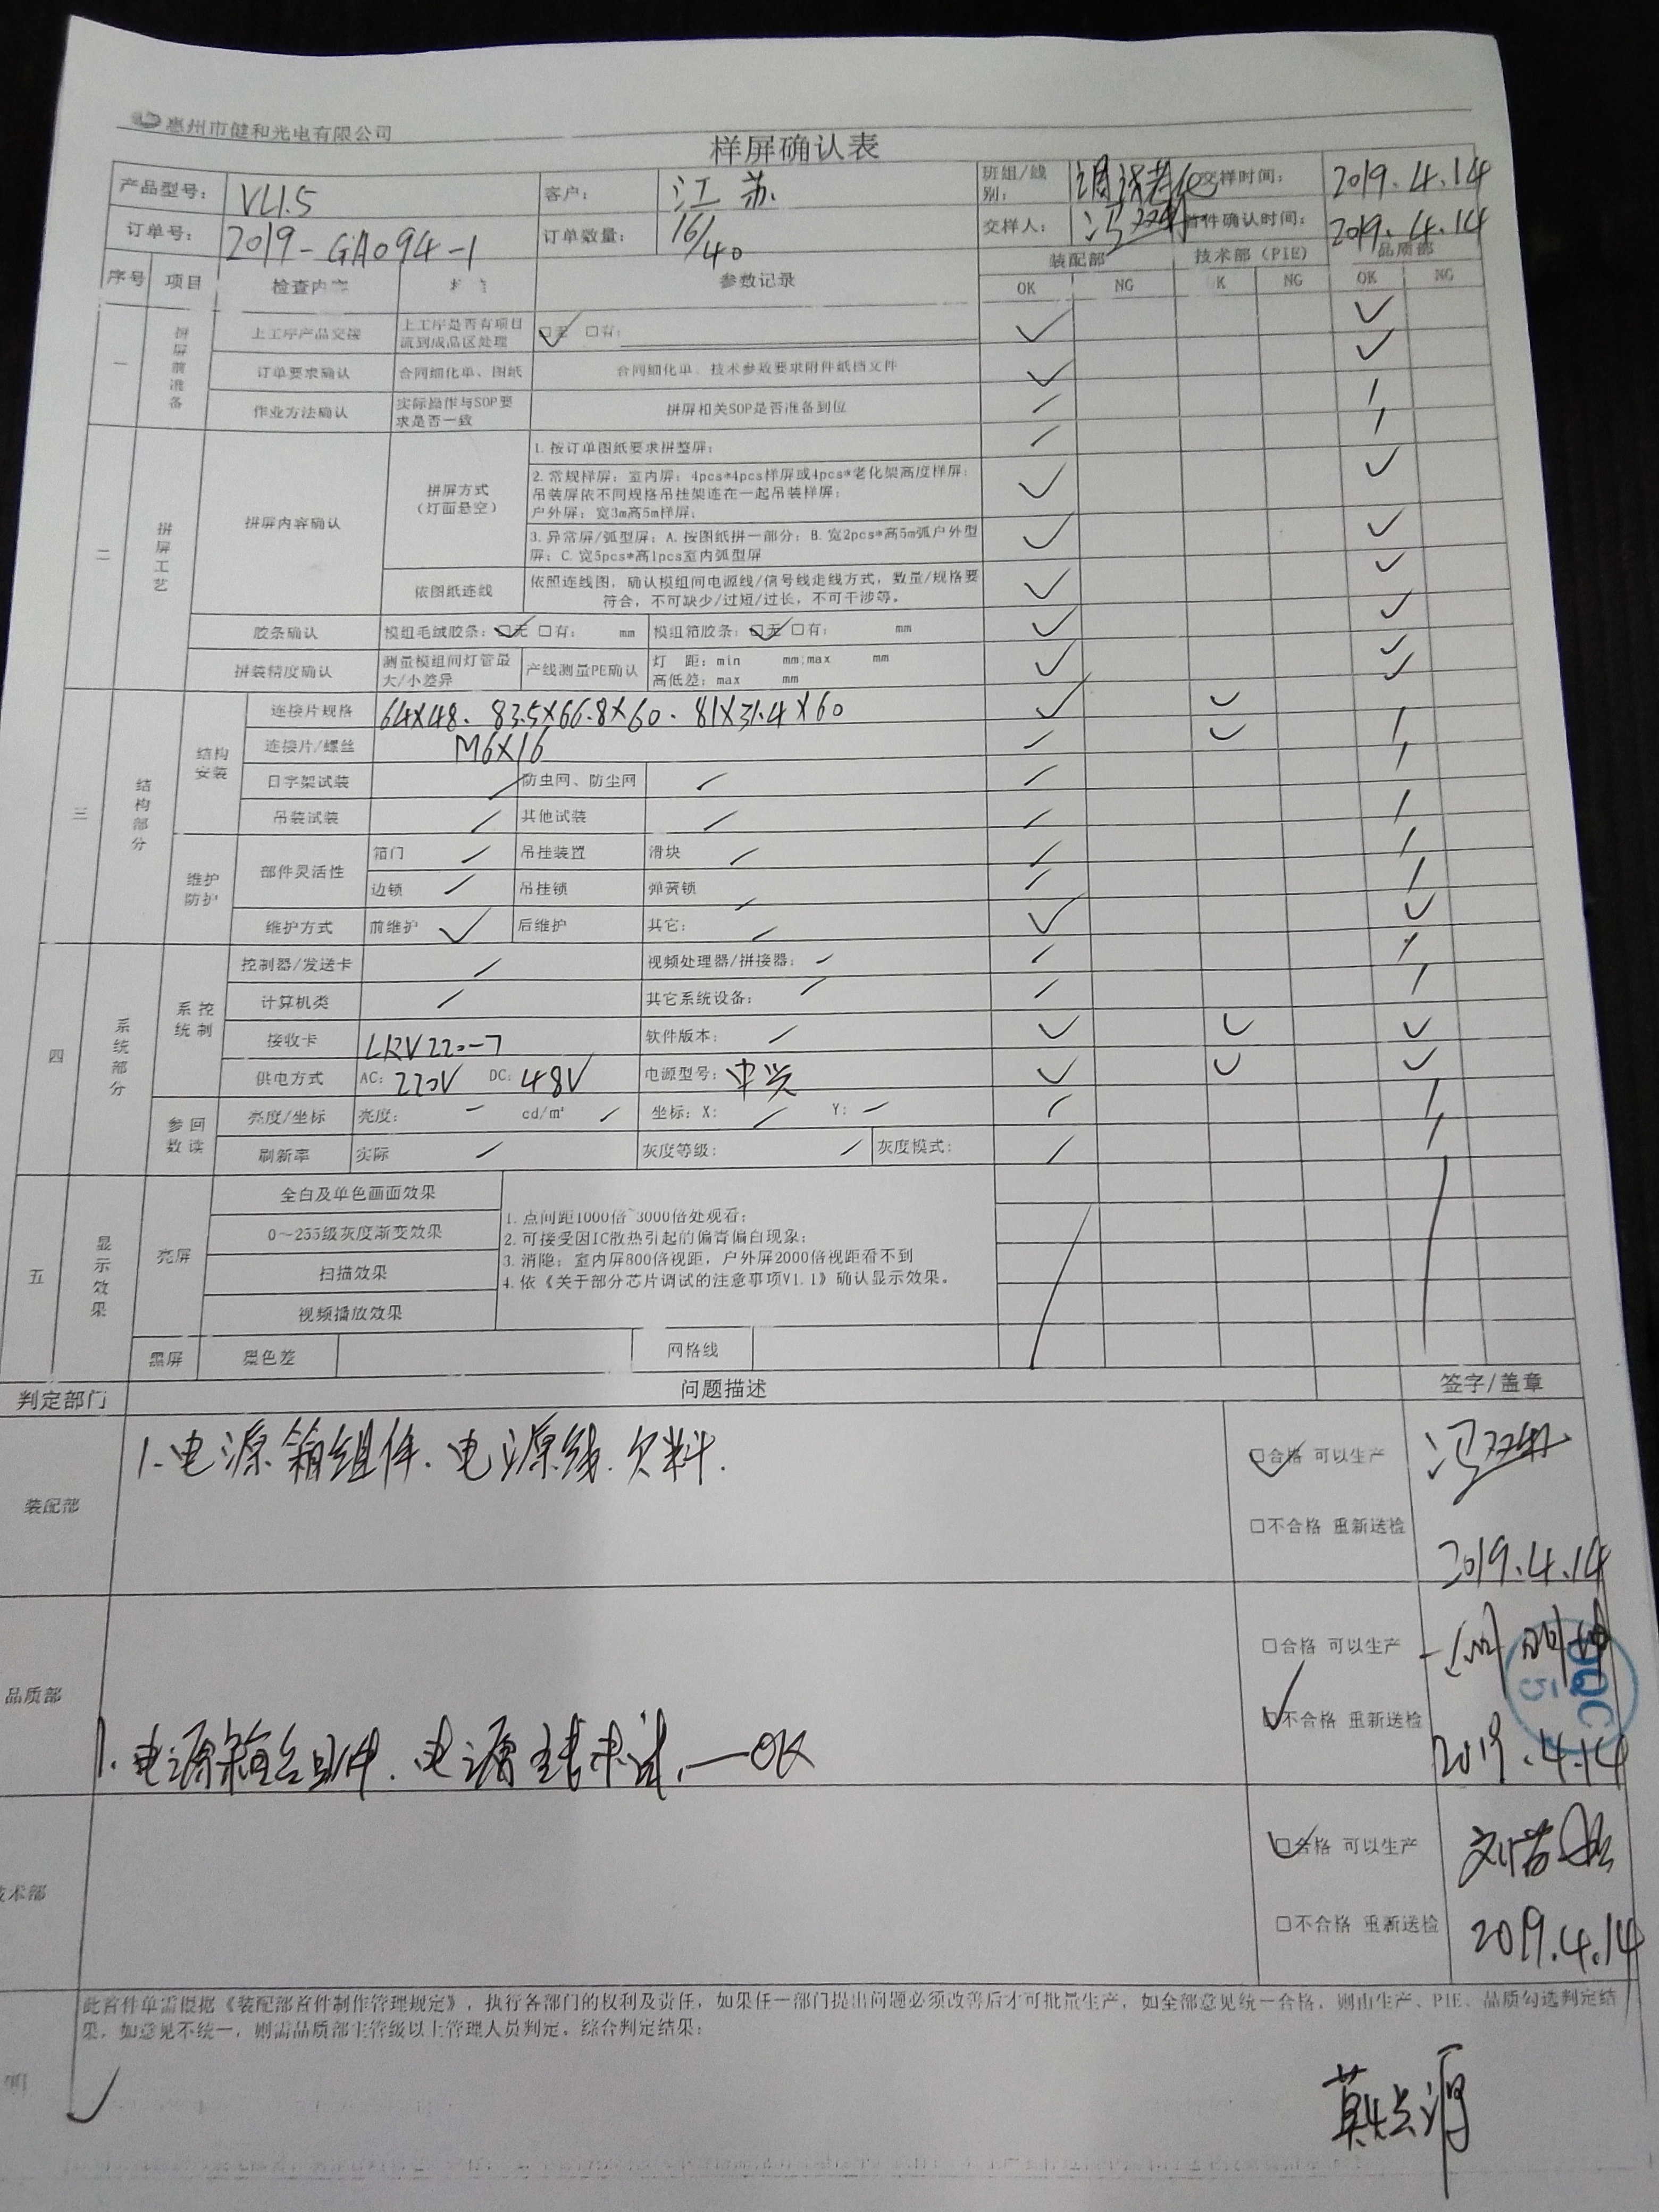 惠州市健和光电有限公司
样屏确认表
产品型号: VL1.5 客户: 江苏 班组/线别: 调试老化 交样时间: 2019.4.14
订单号: 2019-GA094-1 订单数量: 16/40 交样人: 首件确认时间: 2019.4.14
序号 项目 检查内容 参数记录 装配部 技术部(PIE) 品质部
OK NG K NG OK NG
一 拼屏前准备 上工序产品交接 上工序是否有项目流到成品区处理 □无 □有:
订单要求确认 合同细化单、图纸 合同细化单、技术参数要求附件纸档文件
作业方法确认 实际操作与SOP要求是否一致 拼屏相关SOP是否准备到位
二 拼屏工艺 拼屏内容确认 拼屏方式(灯面悬空) 1. 按订单图纸要求拼整屏;
2. 常规样屏: 室内屏: 4pcs*4pcs样屏或4pcs*老化架高度样屏;
吊装屏依不同规格吊挂架连在一起吊装样屏;
户外屏: 宽3m高5m样屏;
3. 异常屏/弧型屏: A. 按图纸拼一部分; B. 宽2pcs*高5m弧户外型屏; C. 宽5pcs*高1pcs室内弧型屏
依图纸连线 依照连线图, 确认模组间电源线/信号线走线方式, 数量/规格要符合, 不可缺少/过短/过长, 不可干涉等。
胶条确认 模组毛绒胶条: □无 □有: mm 模组箱胶条: □无 □有: mm
拼装精度确认 测量模组间灯管最大/小差异 产线测量PE确认 灯 距: min mm;max mm
高低差: max mm
三 结构部分 结构安装 连接片规格 64X48. 83.5X66.8X60. 81X31.4X60
连接片/螺丝 M6X16
日字架试装 防虫网、防尘网
吊装试装 其他试装
维护防护 部件灵活性 箱门 吊挂装置 滑块
边锁 吊挂锁 弹簧锁
维护方式 前维护 后维护 其它:
四 系统部分 系统控制 控制器/发送卡 视频处理器/拼接器:
计算机类 其它系统设备:
接收卡 LRV220-7 软件版本:
供电方式 AC: 220V DC: 48V 电源型号: 中兴
参数回读 亮度/坐标 亮度: cd/m² 坐标: X: Y:
刷新率 实际 灰度等级: 灰度模式:
五 显示效果 亮屏 全白及单色画面效果 1. 点间距1000倍~3000倍处观看;
0~255级灰度渐变效果 2. 可接受因IC散热引起的偏青偏白现象;
扫描效果 3. 消隐: 室内屏800倍视距, 户外屏2000倍视距看不到
视频播放效果 4. 依《关于部分芯片调试的注意事项V1.1》确认显示效果。
黑屏 墨色差 网格线
判定部门 问题描述 签字/盖章
装配部 1.电源箱组件.电源线.欠料. □合格 可以生产
□不合格 重新送检 2019.4.14
品质部 □合格 可以生产 QC 5
1.电源箱组件.电源线未试.—OK □不合格 重新送检 2019.4.14
技术部 □合格 可以生产
□不合格 重新送检 2019.4.14
此首件单需根据《装配部首件制作管理规定》, 执行各部门的权利及责任, 如果任一部门提出问题必须改善后才可批量生产, 如全部意见统一合格, 则由生产、PIE、品质勾选判定结
果, 如意见不统一, 则需品质部主管级以上管理人员判定。综合判定结果:
明